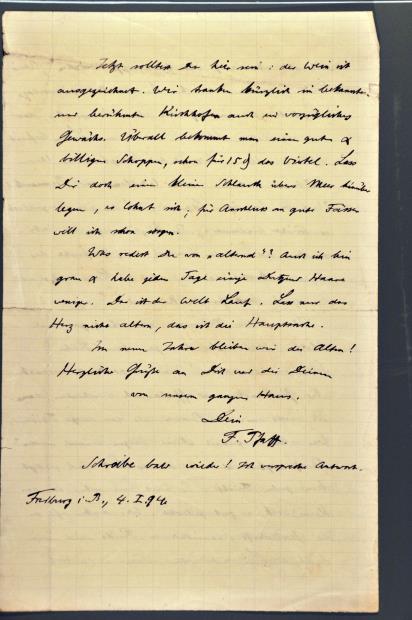 Jetzt solltest Du hier sein: der Wein ist
ausgezeichnet. Wir tranken kürzlich im bekannten
und berühmten Kirchhofen auch ein vorzügliches
Gewächs. Überall bekommt man einen guten &
billigen Schoppen, schon für 15 ₰ das Viertel. Lass
Dir doch eine kleine Schlauch übers Meer hinüber
legen, es lohnt sich; für Anschluss an gute Fässer
will ich schon sorgen.
Was redest Du von „alternd“? Auch ich bin
grau & habe jeden Tag einige Dutzend Haare
weniger. Das ist der Welt Lauf. Lass nur das
Herz nicht altern, das ist die Hauptsache.
Im neuen Jahre bleiben wir die Alten!
Herzliche Grüße an Dich und die Deinen
von unsem ganzen Haus.
Dein
F. Pfaff.
Schreibe bald wieder! Ich verspreche Antwort.
Freiburg i. B., 4. I. 94.